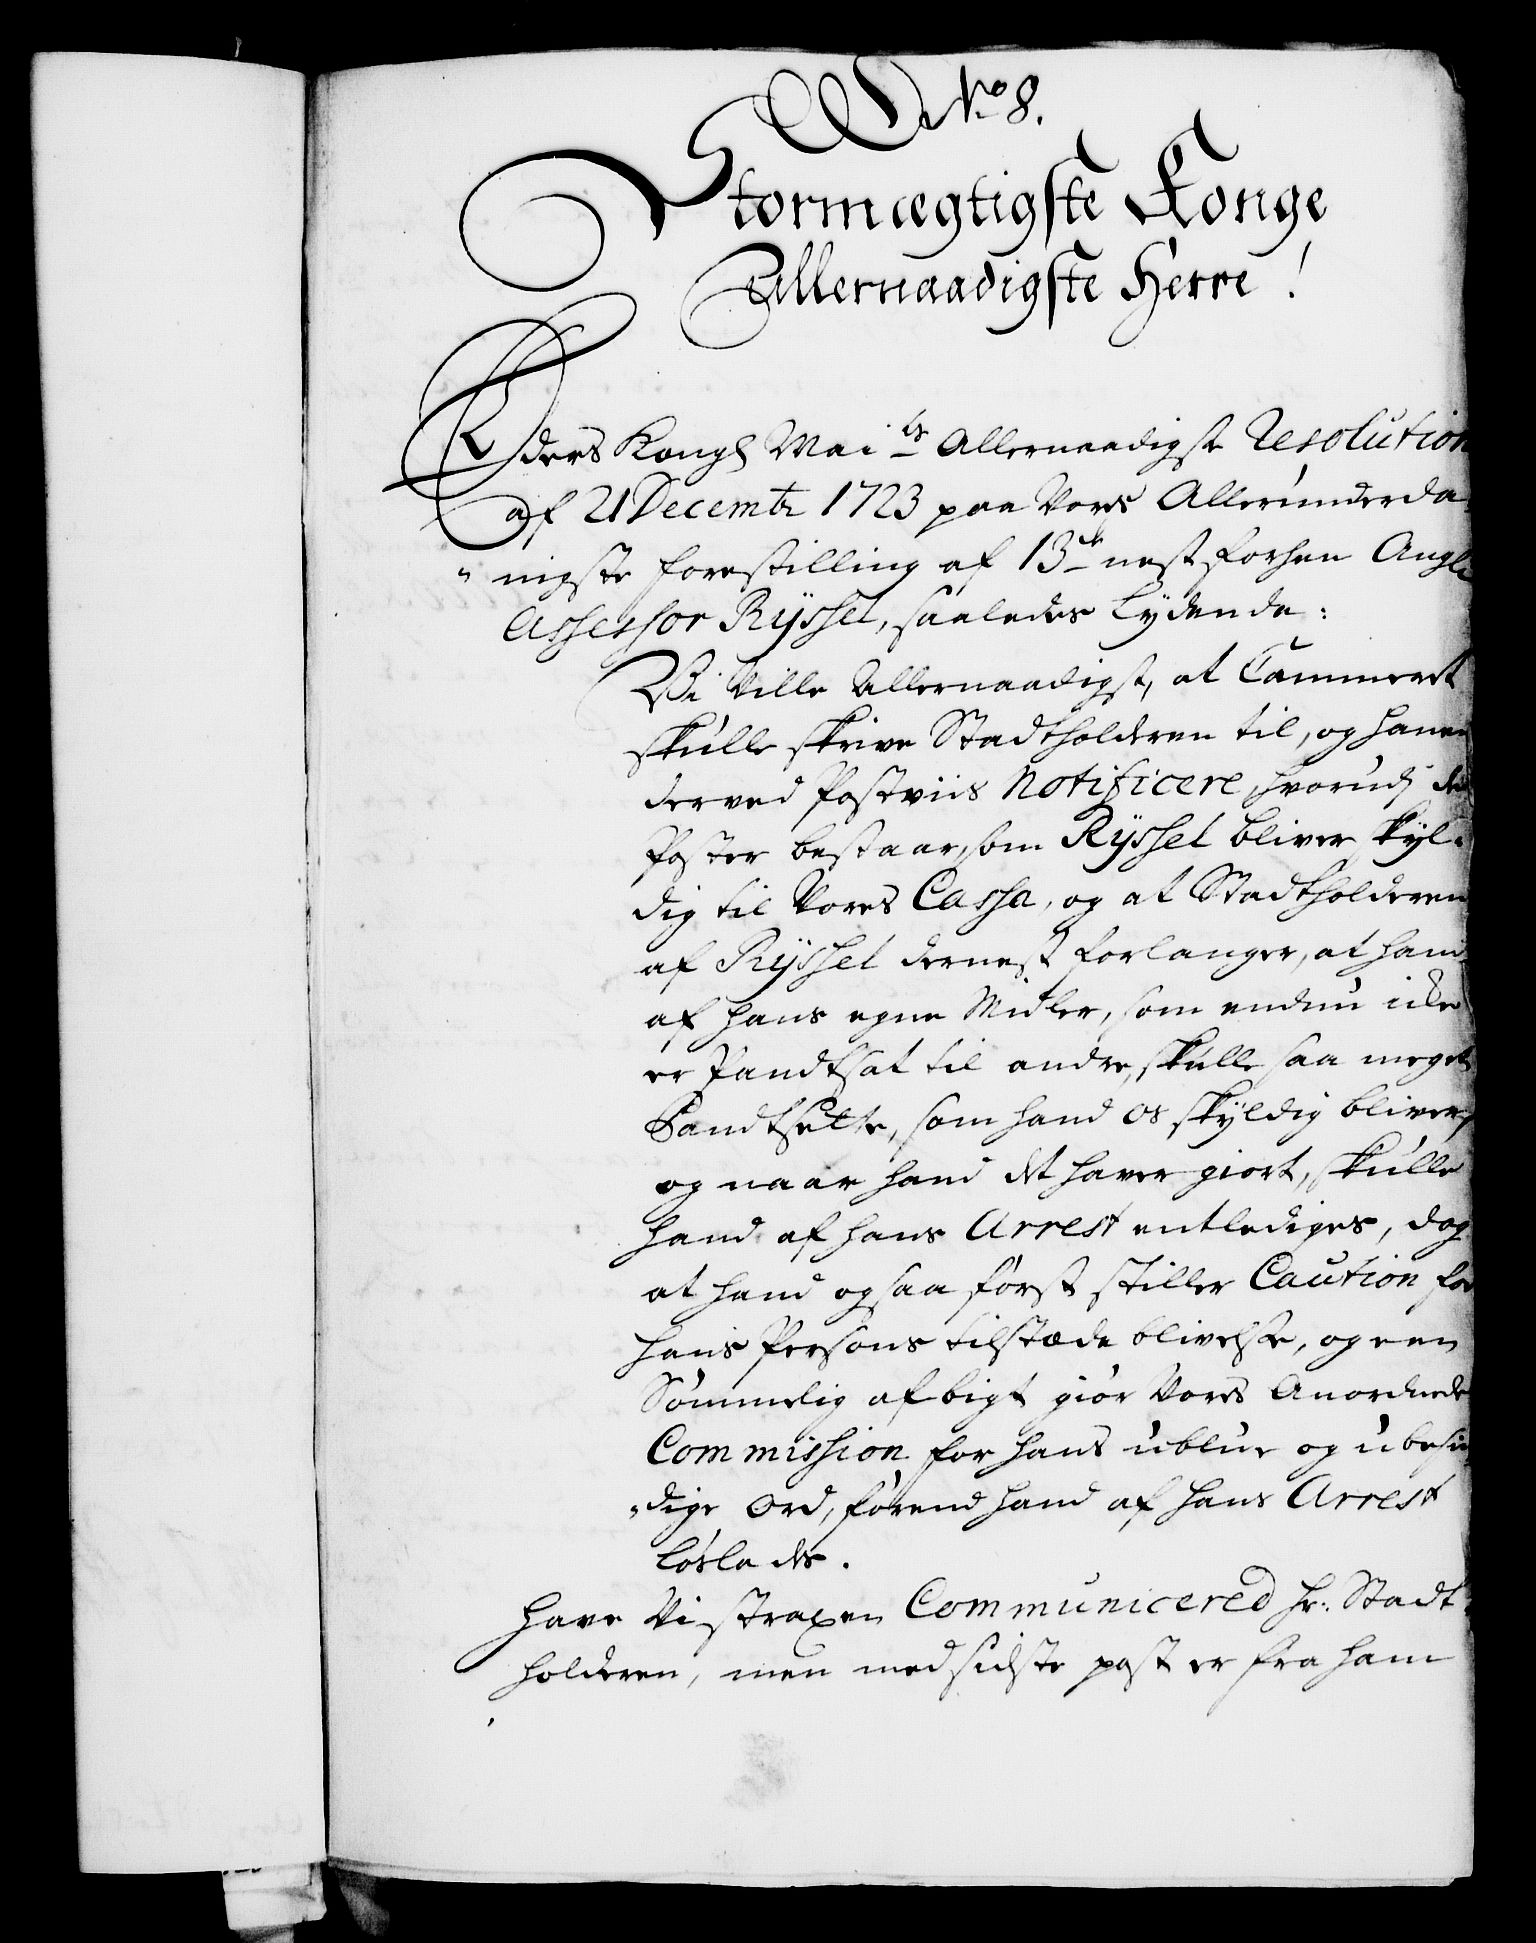 No 8.
Stormægtigste Konge
Allernaadigste Herre!
Eders Kongl Mai ts Allernaadigste Resolution
af 21 Decembr 1723 paa Vores Allerunderda
" nigste forestilling af 13de nest forhen Angl:
Assessor Rÿssel, saaledes lÿdende:
Vi Ville Allernaadigst, at Cammeret
skulle skrive Stadtholderen til, og hanem
derved Postviis Notificere, hvorudj de
Poster bestaar, som Rÿssel bliver skÿl„
dig til Vores Cassa, og at Stadtholderen
af Rÿssel dernest forlanger, at hand
af hans egne Midler, som endnu icke
er Pandtsat til andre, skulle saa meget
Pandtsette, som hand os skÿldig bliver,
og naar hand det haver giort, skulle
hand af hans Arrest entlediges, dog
at hand ogsaa først stiller Caution for
hans Persons tilstæde blivelse, og een
Sømmelig afbigt giør Vores Anordnede
Commission for hans ublue og ubesin
„dige Ord, førend hand af hans Arrest
løslades.
Have Vi straxen Communicered Hr: Stadt
holderen, men med sidste post er fra ham